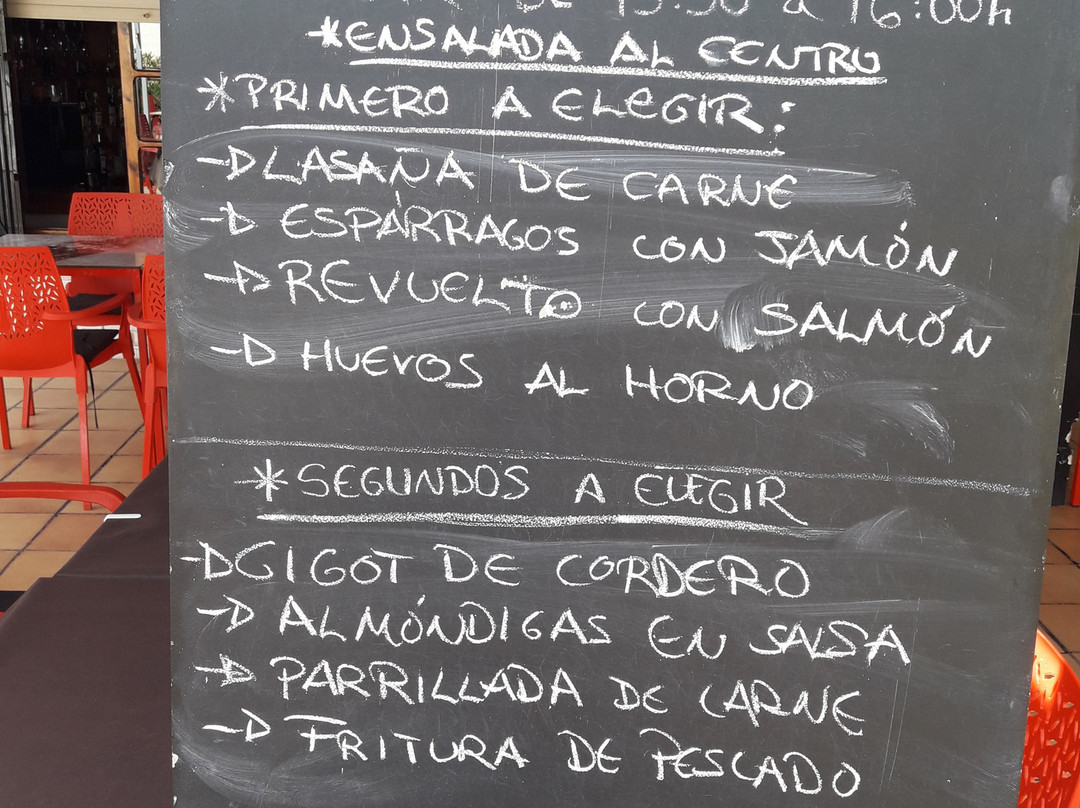 DE 13:30 a 16:00h
*ENSALADA AL CENTRO
*PRIMERO A ELEGIR:
→LASAÑA DE CARNE
→ ESPÁRRAGOS CON JAMÓN
→REVUELTO CON SALMÓN
→ HUEVOS AL HORNO
*SEGUNDOS A ELEGIR
→GIGOT DE CORDERO
→ ALMÓNDIGAS EN SALSA
→ PARRILLADA DE CARNE
→ FRITURA DE PESCADO